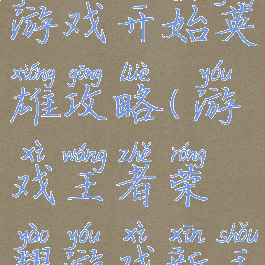 游戏开始英
xióng gōng lüè yóu
雄攻略(游
xì wáng zhě róng
戏王者荣
yào yóu xì xīn shǒu
耀游戏新手